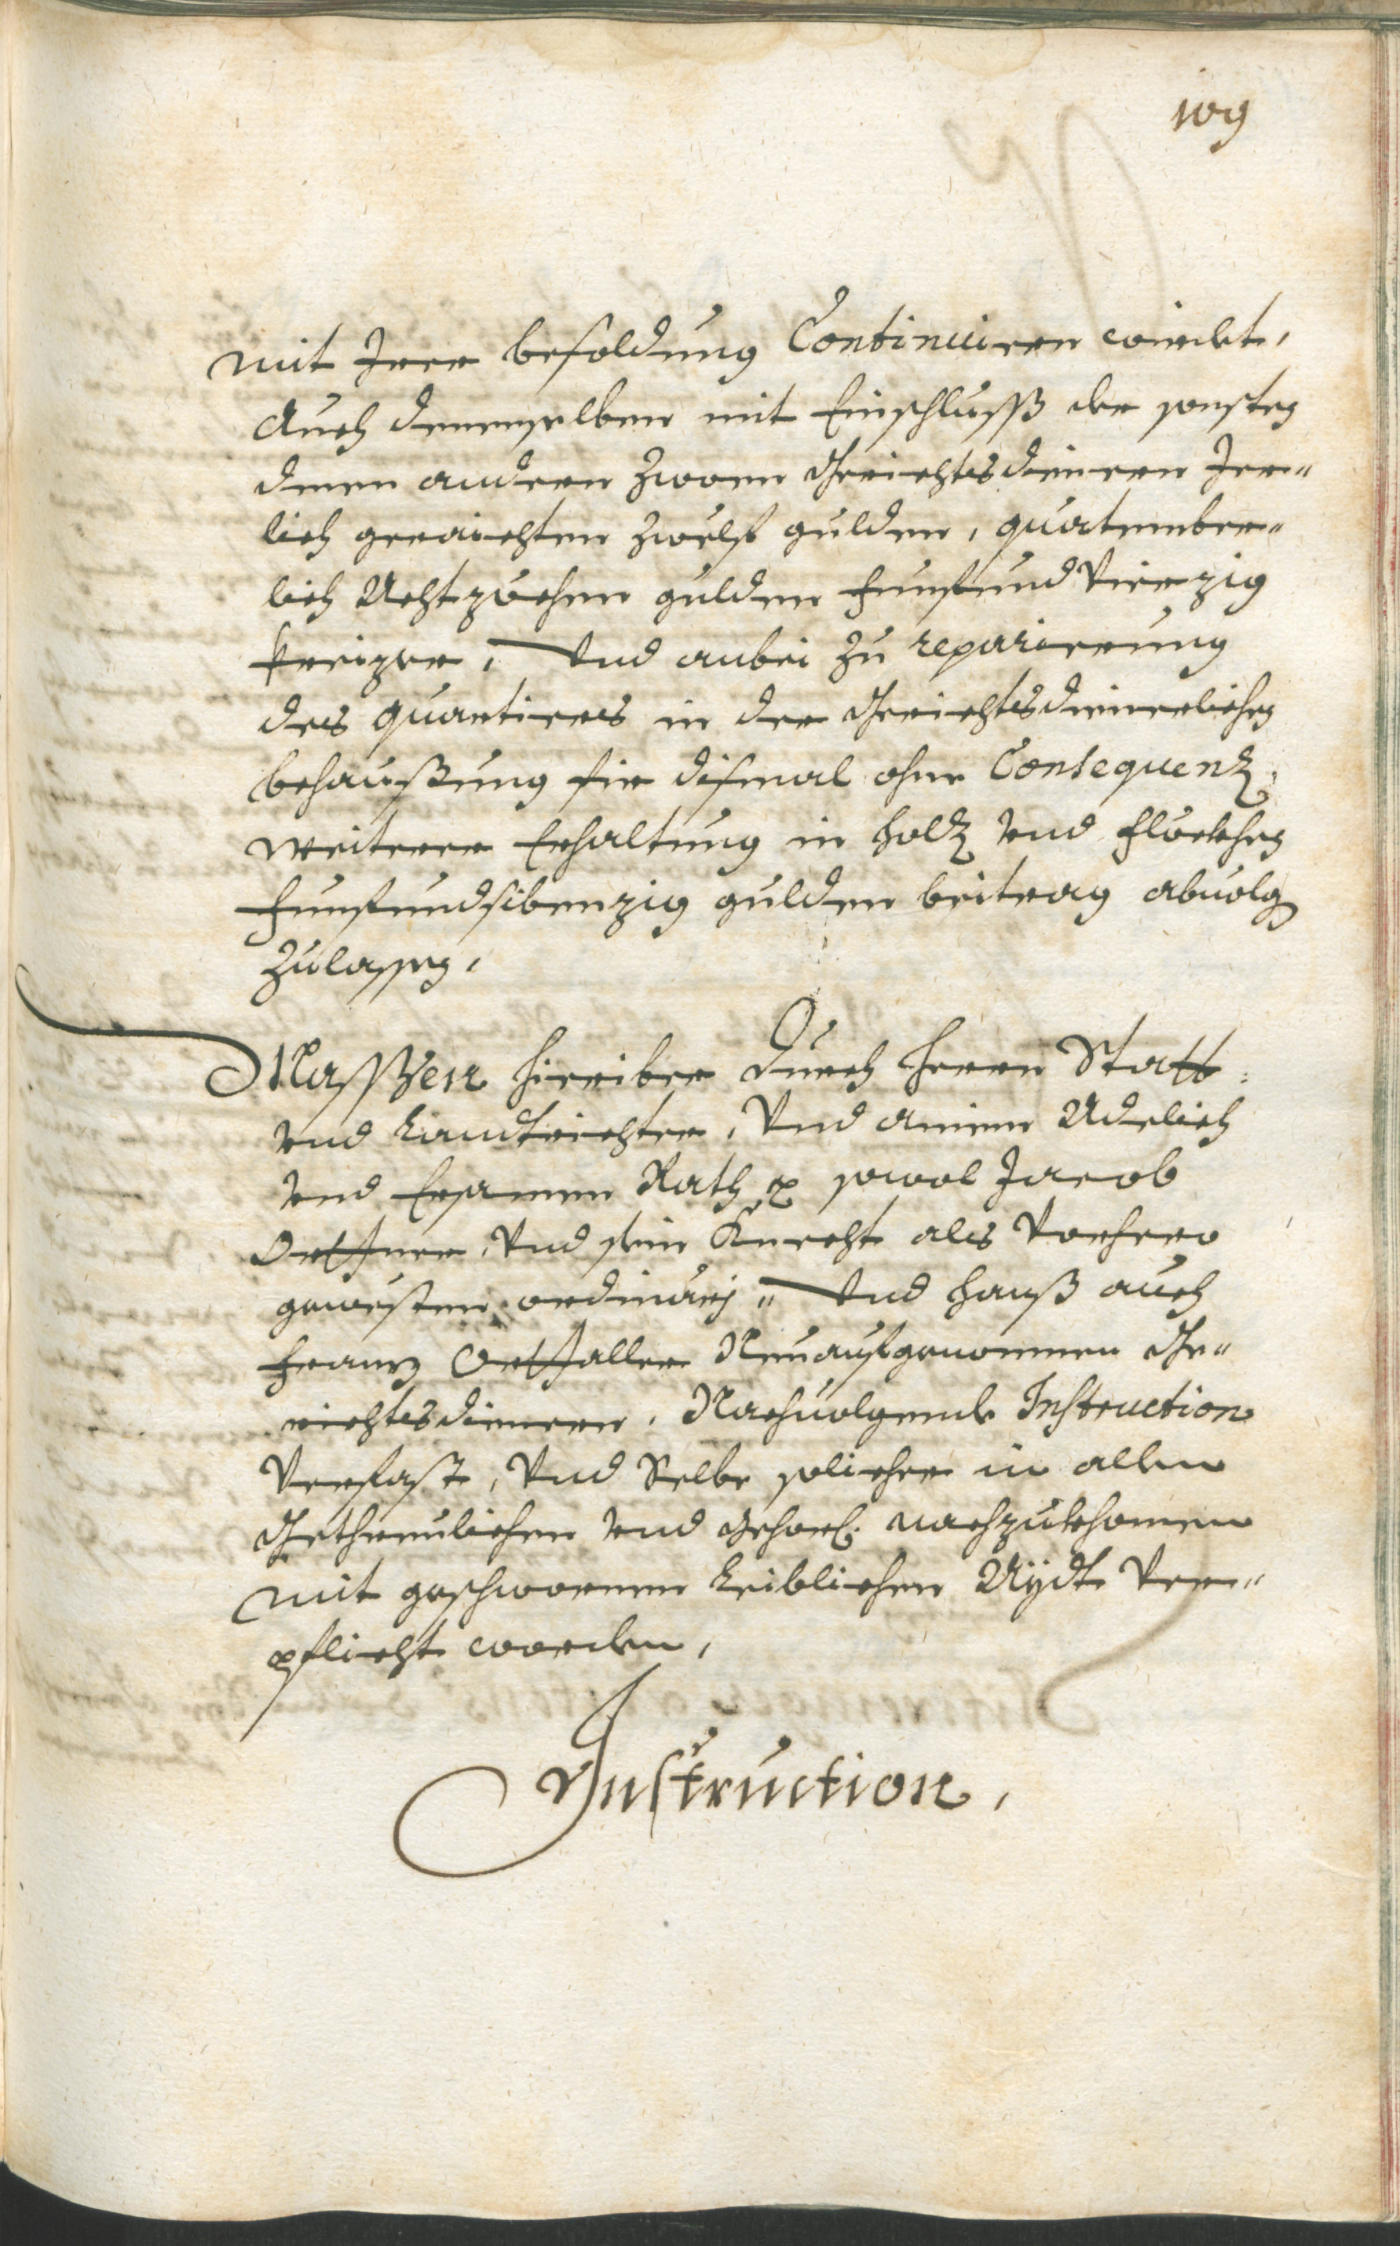 109
mit Irer besoldung Continuiren würdet,
Auch denenselben mit Einschlusß der sonsten
denen andren zwoen Gerichtsdieneren Jer„
lich geraichten zwelf gulden, quatember„
lich Achtzechen gulden funfundvierzig
kreizer, Vnd anbei zu reparierung
des quartiers in der Gerichtsdienerlichen
behaußung fir dismal ohne Consequenz,
weiterer Erhaltung in holz vnd
funfundsibenzig gulden beitrag abuolg
zulassen,
Massen hieriber Durch herrn Statt:
vnd Landtrichter, Vnd ainem Adelich
vnd Ersamen Rath sowol Jacob
Vnd sein Knecht als Vorhero
gewesten ordinarj„ Vnd hanß auch
franz Neuaufgenommen Ge„
richtsdieneren, Nachuolgende Instruction
Verfast, Vnd Selbe solicher in allen
Gethreulichen vnd gehors: nachzukhomen
mit geschwornen Leiblichen Aydt Ver„
pflicht worden,
Instruction,